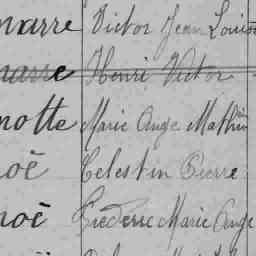 narre Victor Jean Louis
narre Henri Victor
notte Marie Ange Mathurin
oë Celestin Pierre
noë Frederic Marie Ange